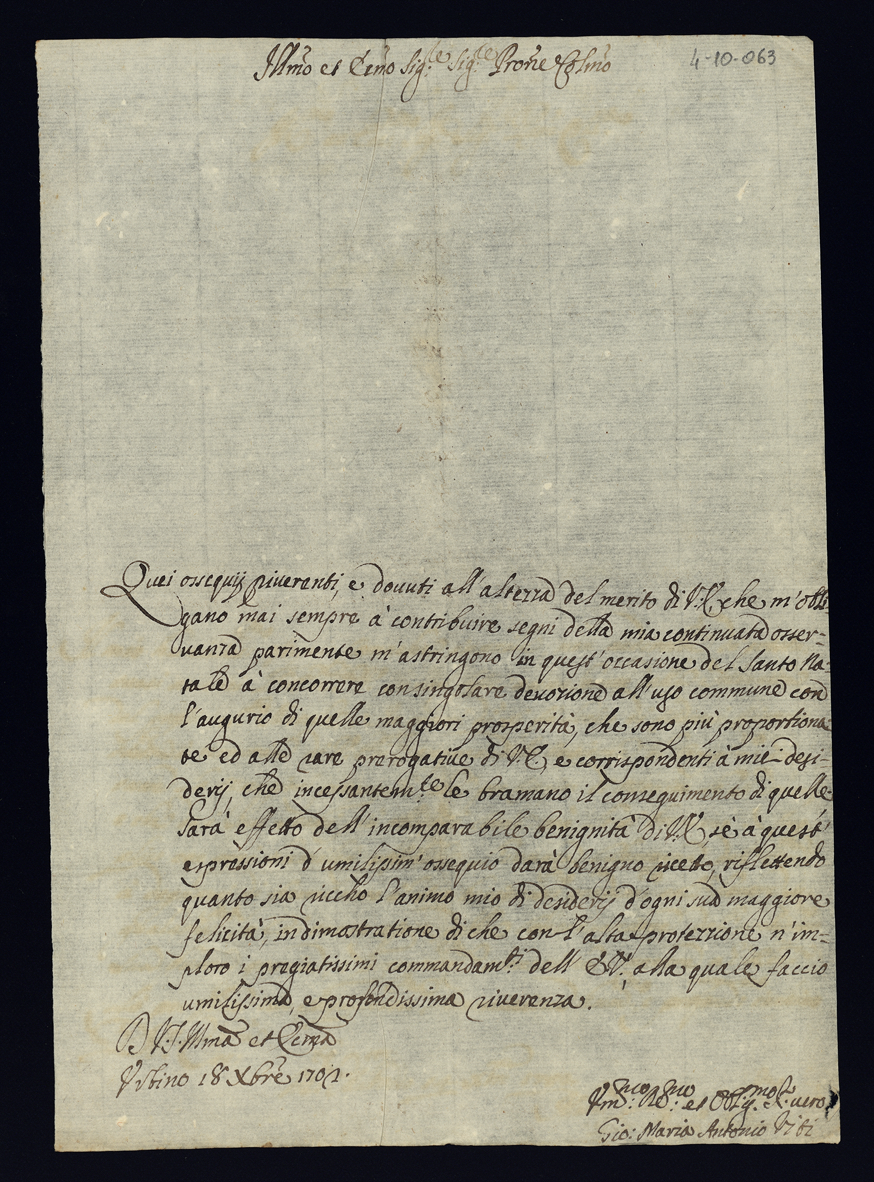 Illmo et Eccmo Sig.re Sig.re Prone Colmo
4-10-063
Quei ossequij riverenti, e dovuti all'altezza del merito di V.E. che m'obli-
gano mai sempre à contribuire segni della mia continuata osser-
vanza parimente m'astringono in quest'occasione del Santo Na-
tale à concorrere con singolare devozione all'uso commune con
l'augurio di quelle maggiori prosperità, che sono più proportiona
te ed alle rare prerogative di V.E., e corrispondenti à miei desi-
derij, che incessantem.te le bramano il conseguimento di quelle.
Sarà effetto dell'incomparabile benignità di V.E. se à quest'
espressioni d'umilissim'ossequio darà benigno ricetto, riflettendo
quanto sia riccho l'animo mio di desiderij d'ogni sua maggiore
felicità, in dimostratione di che con l'alta protezzione n'im-
ploro i pregiatissimi commandam.ti dell'E.V., alla quale faccio
umilissima, e profondissima riverenza.
D V.S. Illma et Eccma
Urbino 18 Xbre 1702.
Um.mo Dev.mo et Obblig.mo S. vero
Gio: Maria Antonio Viti